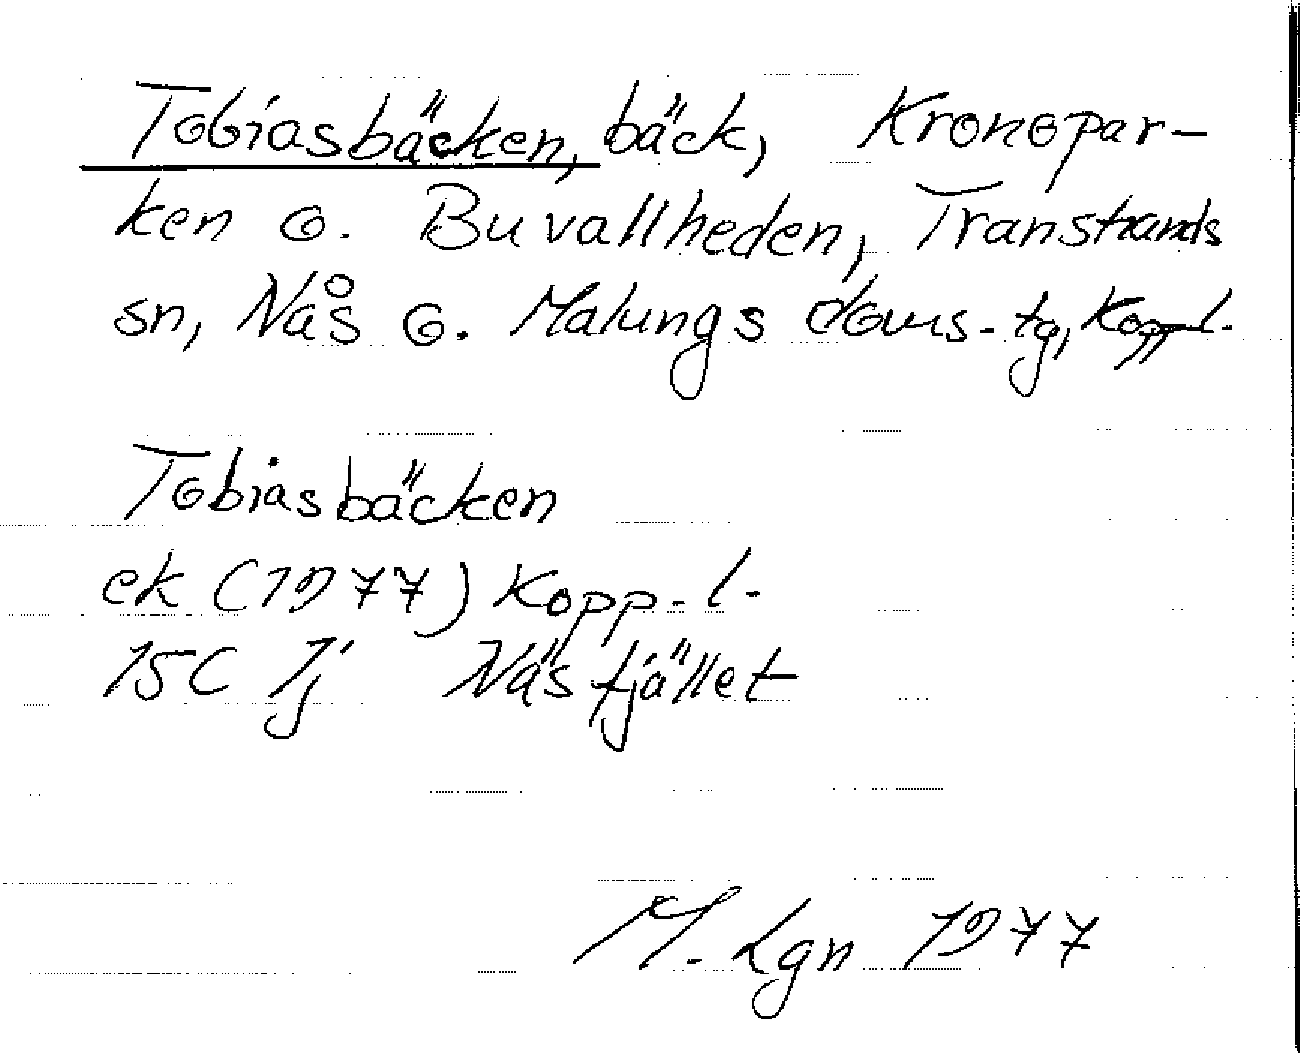 Tobiasbäcken, bäck, Kronopar-
ken o. Buvallheden, Transtrands
sn, Nås o. Malungs doms-tg, Kopp.l.
Tobiasbäcken
ek (1977) Kopp.l.
15C 7j Näsfjället
M. Lgn 1977